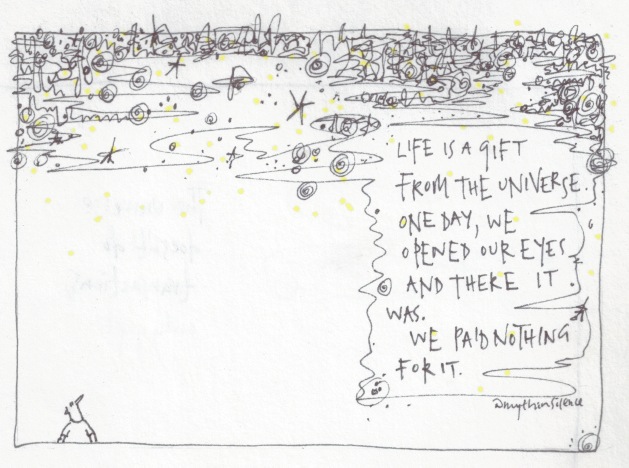 LIFE IS A GIFT
FROM THE UNIVERSE.
ONE DAY, WE
OPENED OUR EYES
AND THERE IT
WAS.
WE PAID NOTHING
FOR IT.